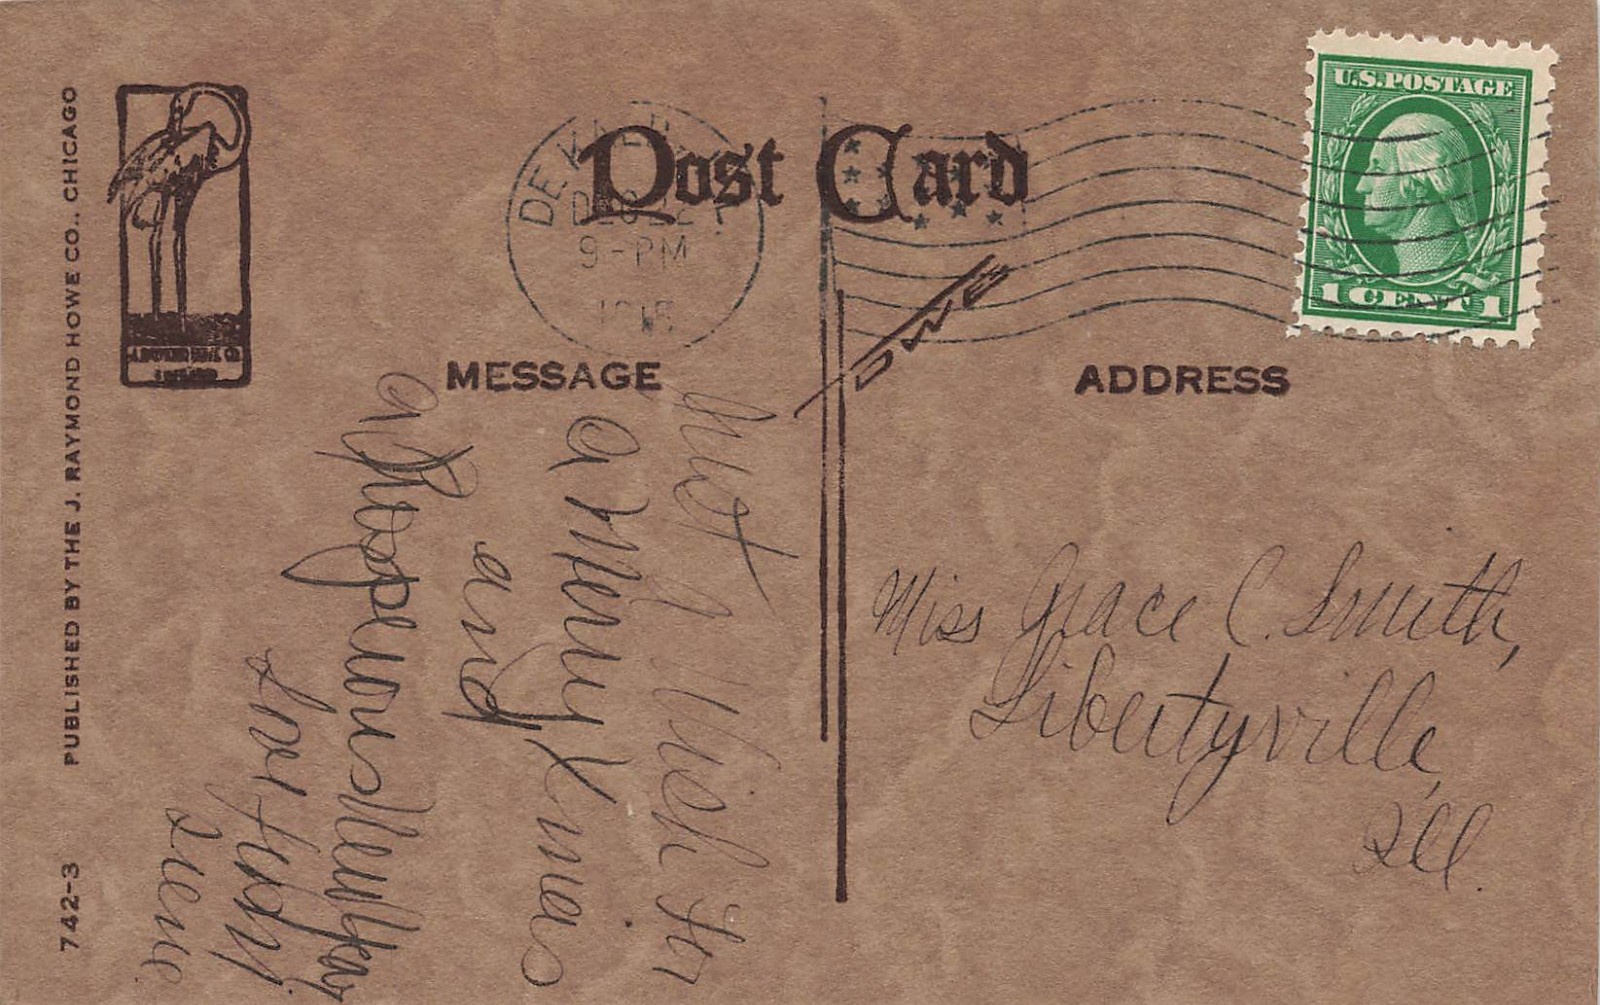 U.S.POSTAGE
1 CENT 1
Post Card
DEC 22
9-PM
MESSAGE
ADDRESS
PUBLISHED BY THE J. RAYMOND HOWE CO., CHICAGO
742-3
Wish
a Merry Xmas
and
a Prosperous New Year
Miss Grace C. Smith,
Libertyville,
Ill.